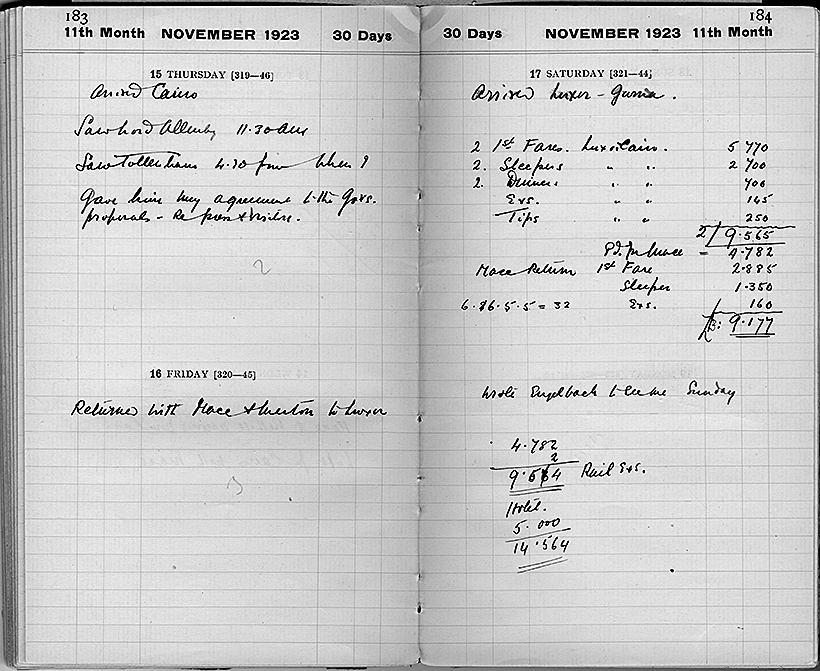 183
11th Month NOVEMBER 1923 30 Days
15 THURSDAY [319—46]
Arrived Cairo
Saw Lord Allenby 11.30 am
Saw Tottenham 4.30 pm when I
Gave him my agreement to the Govs.
proposals - Re press & visitors.
2
16 FRIDAY [320—45]
Returned with Mace & Merton to Luxor
3
184
30 Days NOVEMBER 1923 11th Month
17 SATURDAY [321—44]
Arrived Luxor - Gurna.
2 1st Fares. Luxor Cairo. 5 770
2. Sleepers " " 2 700
2. Dinners " " 400
Exs. " " 145
Tips " " 250
2/ 9.565
Pd. for Mace = 4.782
Mace Return 1st Fare 2.885
Sleeper 1.350
6.86.5.5 = 32 Exs. 160
9.177
Wrote Engelbach to see me Sunday
4.782
2
9.564 Rail Exs.
Hotel.
5.000
14.564